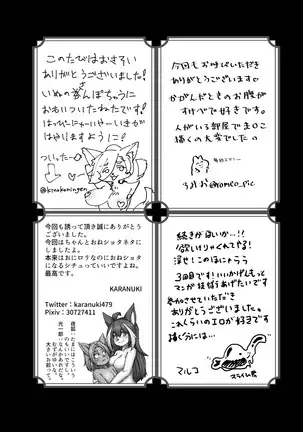 このたびはおさそい
ありがとうございました!
いぬのさんぽちゅうに
おもいついたねたです!
はっぴーにゃーいやーいきが
はやりますように!
ついったー
今回もお呼びいただき
ありがとうございます。
かがんだときのお腹が
すけべで好きです。
人がいる部屋で
描くの大変でした。
@romco_pic
今回も誘って頂き誠にありがとう
ございました。
今回はちゃんとおねショタネタに
しましたよ。
本来はおにロリなのにおねショタ
になるシチュっていいですよね。
最高です。
KARANUKI
Twitter:karanuki479
Pixiv:30727411
続きがほしいか…!!
欲しけりゃくれてやる!
3回目です!いいかげんもっと
マンガ
参加させていただき
ありがとうございました。
これくらいのエロが好きです
描く分には…
マルコ
スライム君